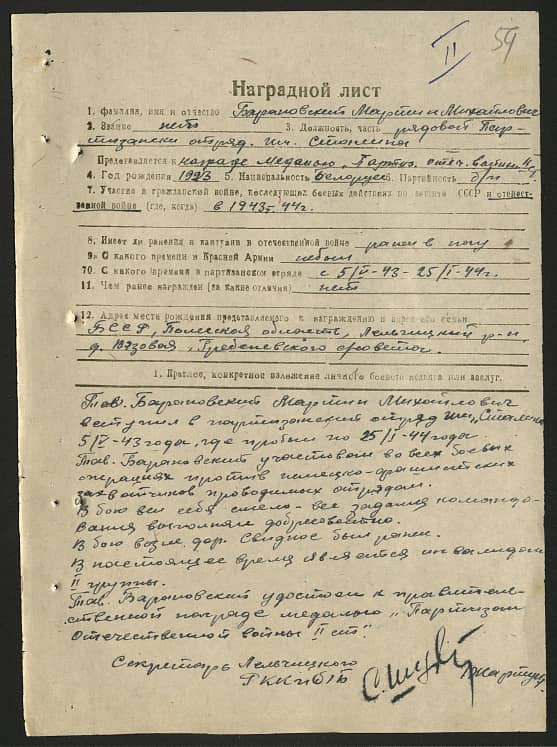 II 59
Наградной лист
1. Фамилия, имя и отчество Барановский Мартин Михайлович
2. Звание нет 3. Должность, часть рядовой Пар-
тизански отряд. им. Сталина
Представляется к награде Медалью "Партиз. отеч. войны II ст."
4. Год рождения 1923 5. Национальность Белорус 6. Партийность б/п
7. Участие в гражданской войне, последующих боевых действиях по защите СССР и отечест-
венной войне (где, когда) в 1943-44г.
8. Имеет ли ранения и контузии в отечественной войне ранен в ногу
9. С какого времени в Красной Армии не был
10. С какого времени в партизанском отряде с 5/V-43 - 25/I-44г.
11. Чем ранее награжден (за какие отличия) нет
12. Адрес места рождения представляемого к награждению и адрес его семьи
БССР, Полесская область, Лельчицкий р-н,
д. Вязовая, Гребеневского с/совета.
1. Краткое, конкретное изложение личного боевого подвига или заслуг.
Тов. Барановский Мартин Михайлович
вступил в партизанский отряд им. Сталина
5/V-43 года, где пробыл по 25/I-44 года.
Тов. Барановский участвовал во всех боевых
операциях против немецко-фашистских
захватчиков проводимых отрядом.
В бою вел себя смело - все задания командо-
вания выполнял добросовестно.
В бою возле дер. Свидное был ранен.
В настоящее время является инвалидом
II группы.
Тов. Барановский удостоен к правитель-
ственной награде медалью "Партизан
Отечественной войны II ст".
Секретарь Лельчицкого
РККП(б)Б